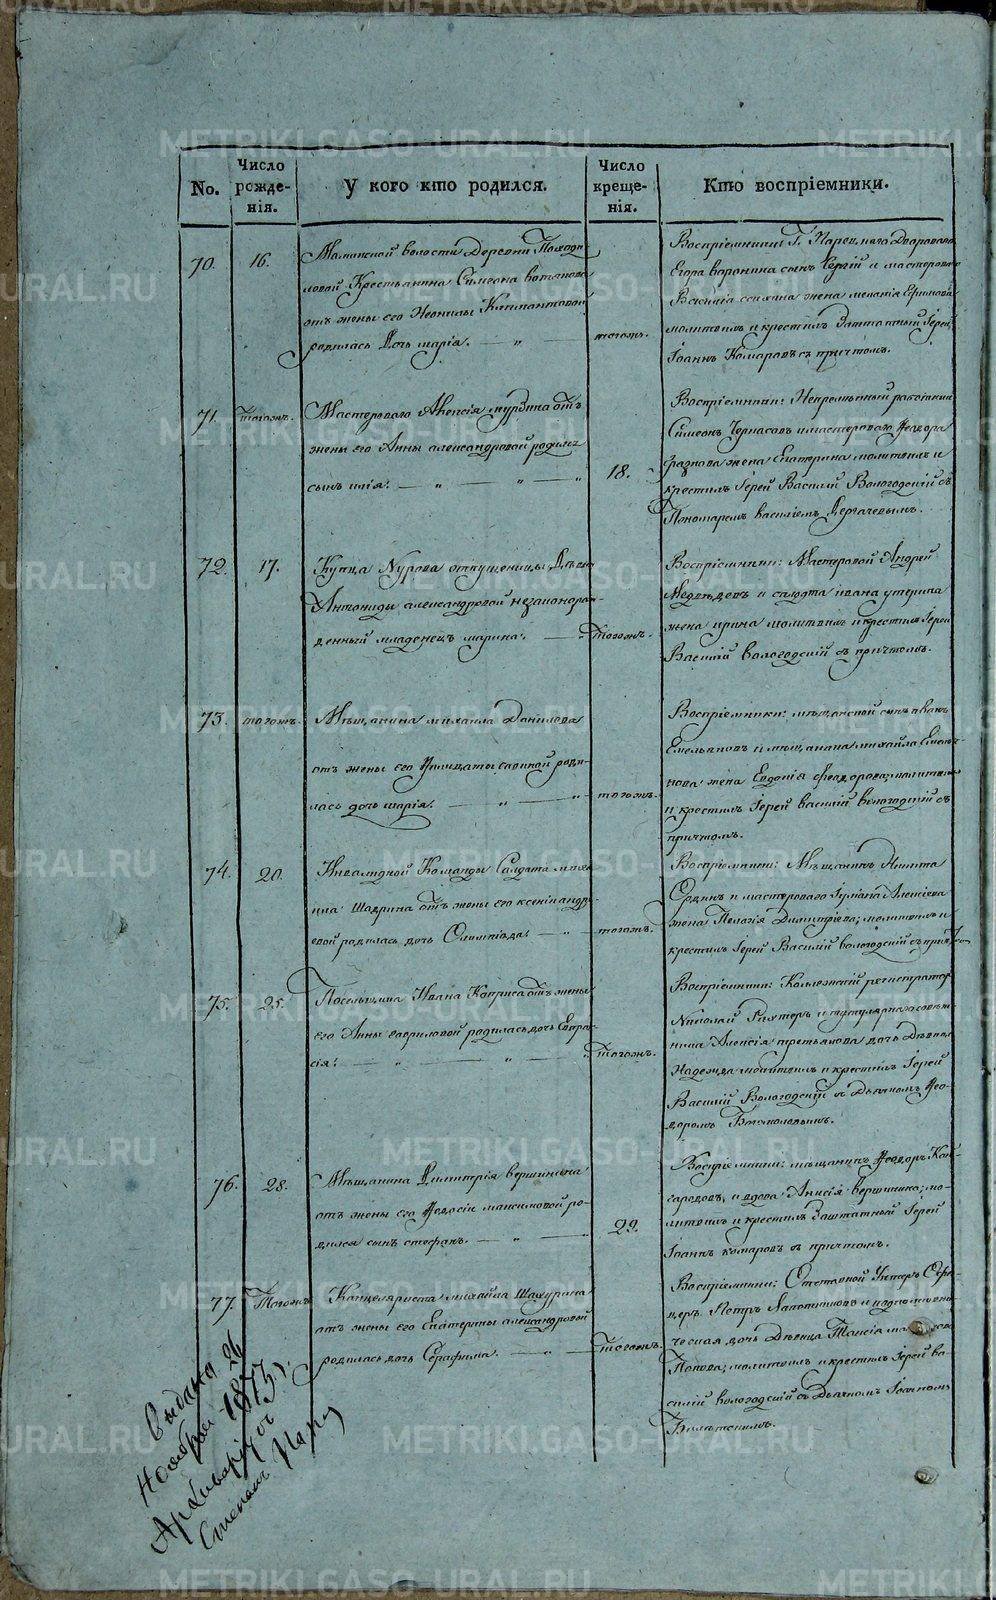 No.
Число рожденія.
У кого кто родился.
Число крещенія.
Кто воспріемники.
70.
16.
Маминской волости Деревни
ловой Крестьянина Симеона
отъ жены его Неонилы
родилась Дочь марія.
тогожъ.
Воспріемники: Г.
Егора воронина сынъ Сергій и мастероваго
жена меланія Ефимова
молитвилъ и крестилъ Заштатный Іерей
Іоаннъ Комаровъ съ причтомъ.
71.
тогожъ.
Мастероваго Алексія мурзина отъ
жены его Анны александровой родился
сынъ илія.
18.
Воспріемники: Непремѣнный работникъ
Симеонъ Черкасовъ и мастероваго Феодора
жена Екатерина молитвилъ и
крестилъ Іерей Василій Вологодскій съ
Пономаремъ василіемъ Дергачевымъ.
72.
17.
Купца Нурова отпущеницы Дѣвки
Антониды александровой незаконорож-
денный младенецъ марина.
тогожъ.
Воспріемники: Мастеровой Андрей
Медвѣдевъ и салдата ивана
жена ирина молитвилъ и крестилъ Іерей
Василій вологодскій съ причтомъ.
73.
тогожъ.
Мѣщанина михаила Данилова
отъ жены его савиной роди-
лась дочь марія.
тогожъ.
Воспріемники: мѣщанской сынъ иванъ
Емельяновъ и мѣщанина михайла Емелья-
нова жена Евдокія феодорова; молитвилъ
и крестилъ Іерей василій вологодскій съ
причтомъ.
74.
20.
Инвалидной Команды Салдата
Шаврина отъ жены его ксеніи андре-
евой родилась дочь Олимпіада.
тогожъ.
Воспріемники: Мѣщанинъ Никита
и мастероваго Іуліана Алексіева
жена Пелагія Димитріева; молитвилъ и
крестилъ Іерей Василій вологодскій съ причтом
75.
25.
Посельщика Ивана отъ жены
его Анны гавриловой родилась дочь Евпрак-
сія.
тогожъ.
Воспріемники: Коллежскій регистраторъ
Николай Рихтеръ и титулярнаго совѣт-
ника Алексія третьякова дочь Дѣвица
Надежда молитвилъ и крестилъ Іерей
Василій Вологодскій съ Дьячкомъ Фео-
доромъ Богомоловымъ.
76.
28.
Мѣщанина Димитрія вершинина
отъ жены его Феодосіи максимовой ро-
дился сынъ стефанъ.
29.
Воспріемники: мѣщанинъ Феодоръ
и вдова Анисія вершинина; мо-
литвилъ и крестилъ Заштатный Іерей
Іоаннъ комаровъ съ причтомъ.
77.
Тогожъ
Канцеляриста михайла Шахурина
отъ жены его Екатерины александровой
родилась дочь Серафима.
тогожъ.
Воспріемники: Отставной Унтеръ Офи-
церъ Петръ Лапотниковъ и
дочь Дѣвица Таисія
Попова; молитвилъ и крестилъ Іерей ва-
силій вологодскій съ Дьячкомъ Іоанномъ
Выдана 26
Ноября 1873 г.
Архиваріусъ
Степанъ
METRIKI.GASO-URAL.RU